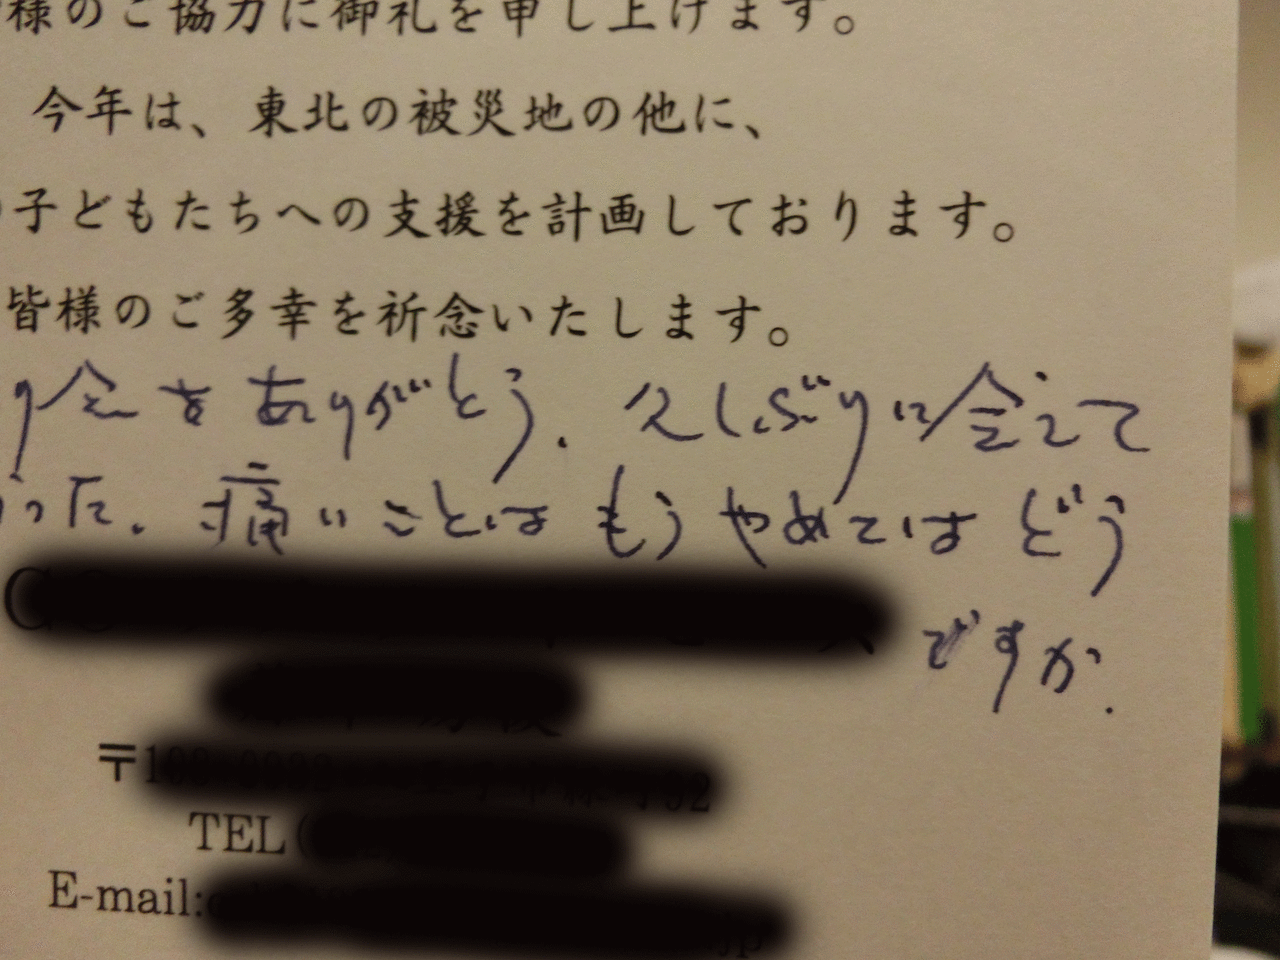 様のご協力に御礼を申し上げます。
今年は、東北の被災地の他に、
子どもたちへの支援を計画しております。
皆様のご多幸を祈念いたします。
をありがとう. 久しぶりに会えて
った. 痛いことはもうやめてはどう
ですか.
〒1
TEL(
E-mail: